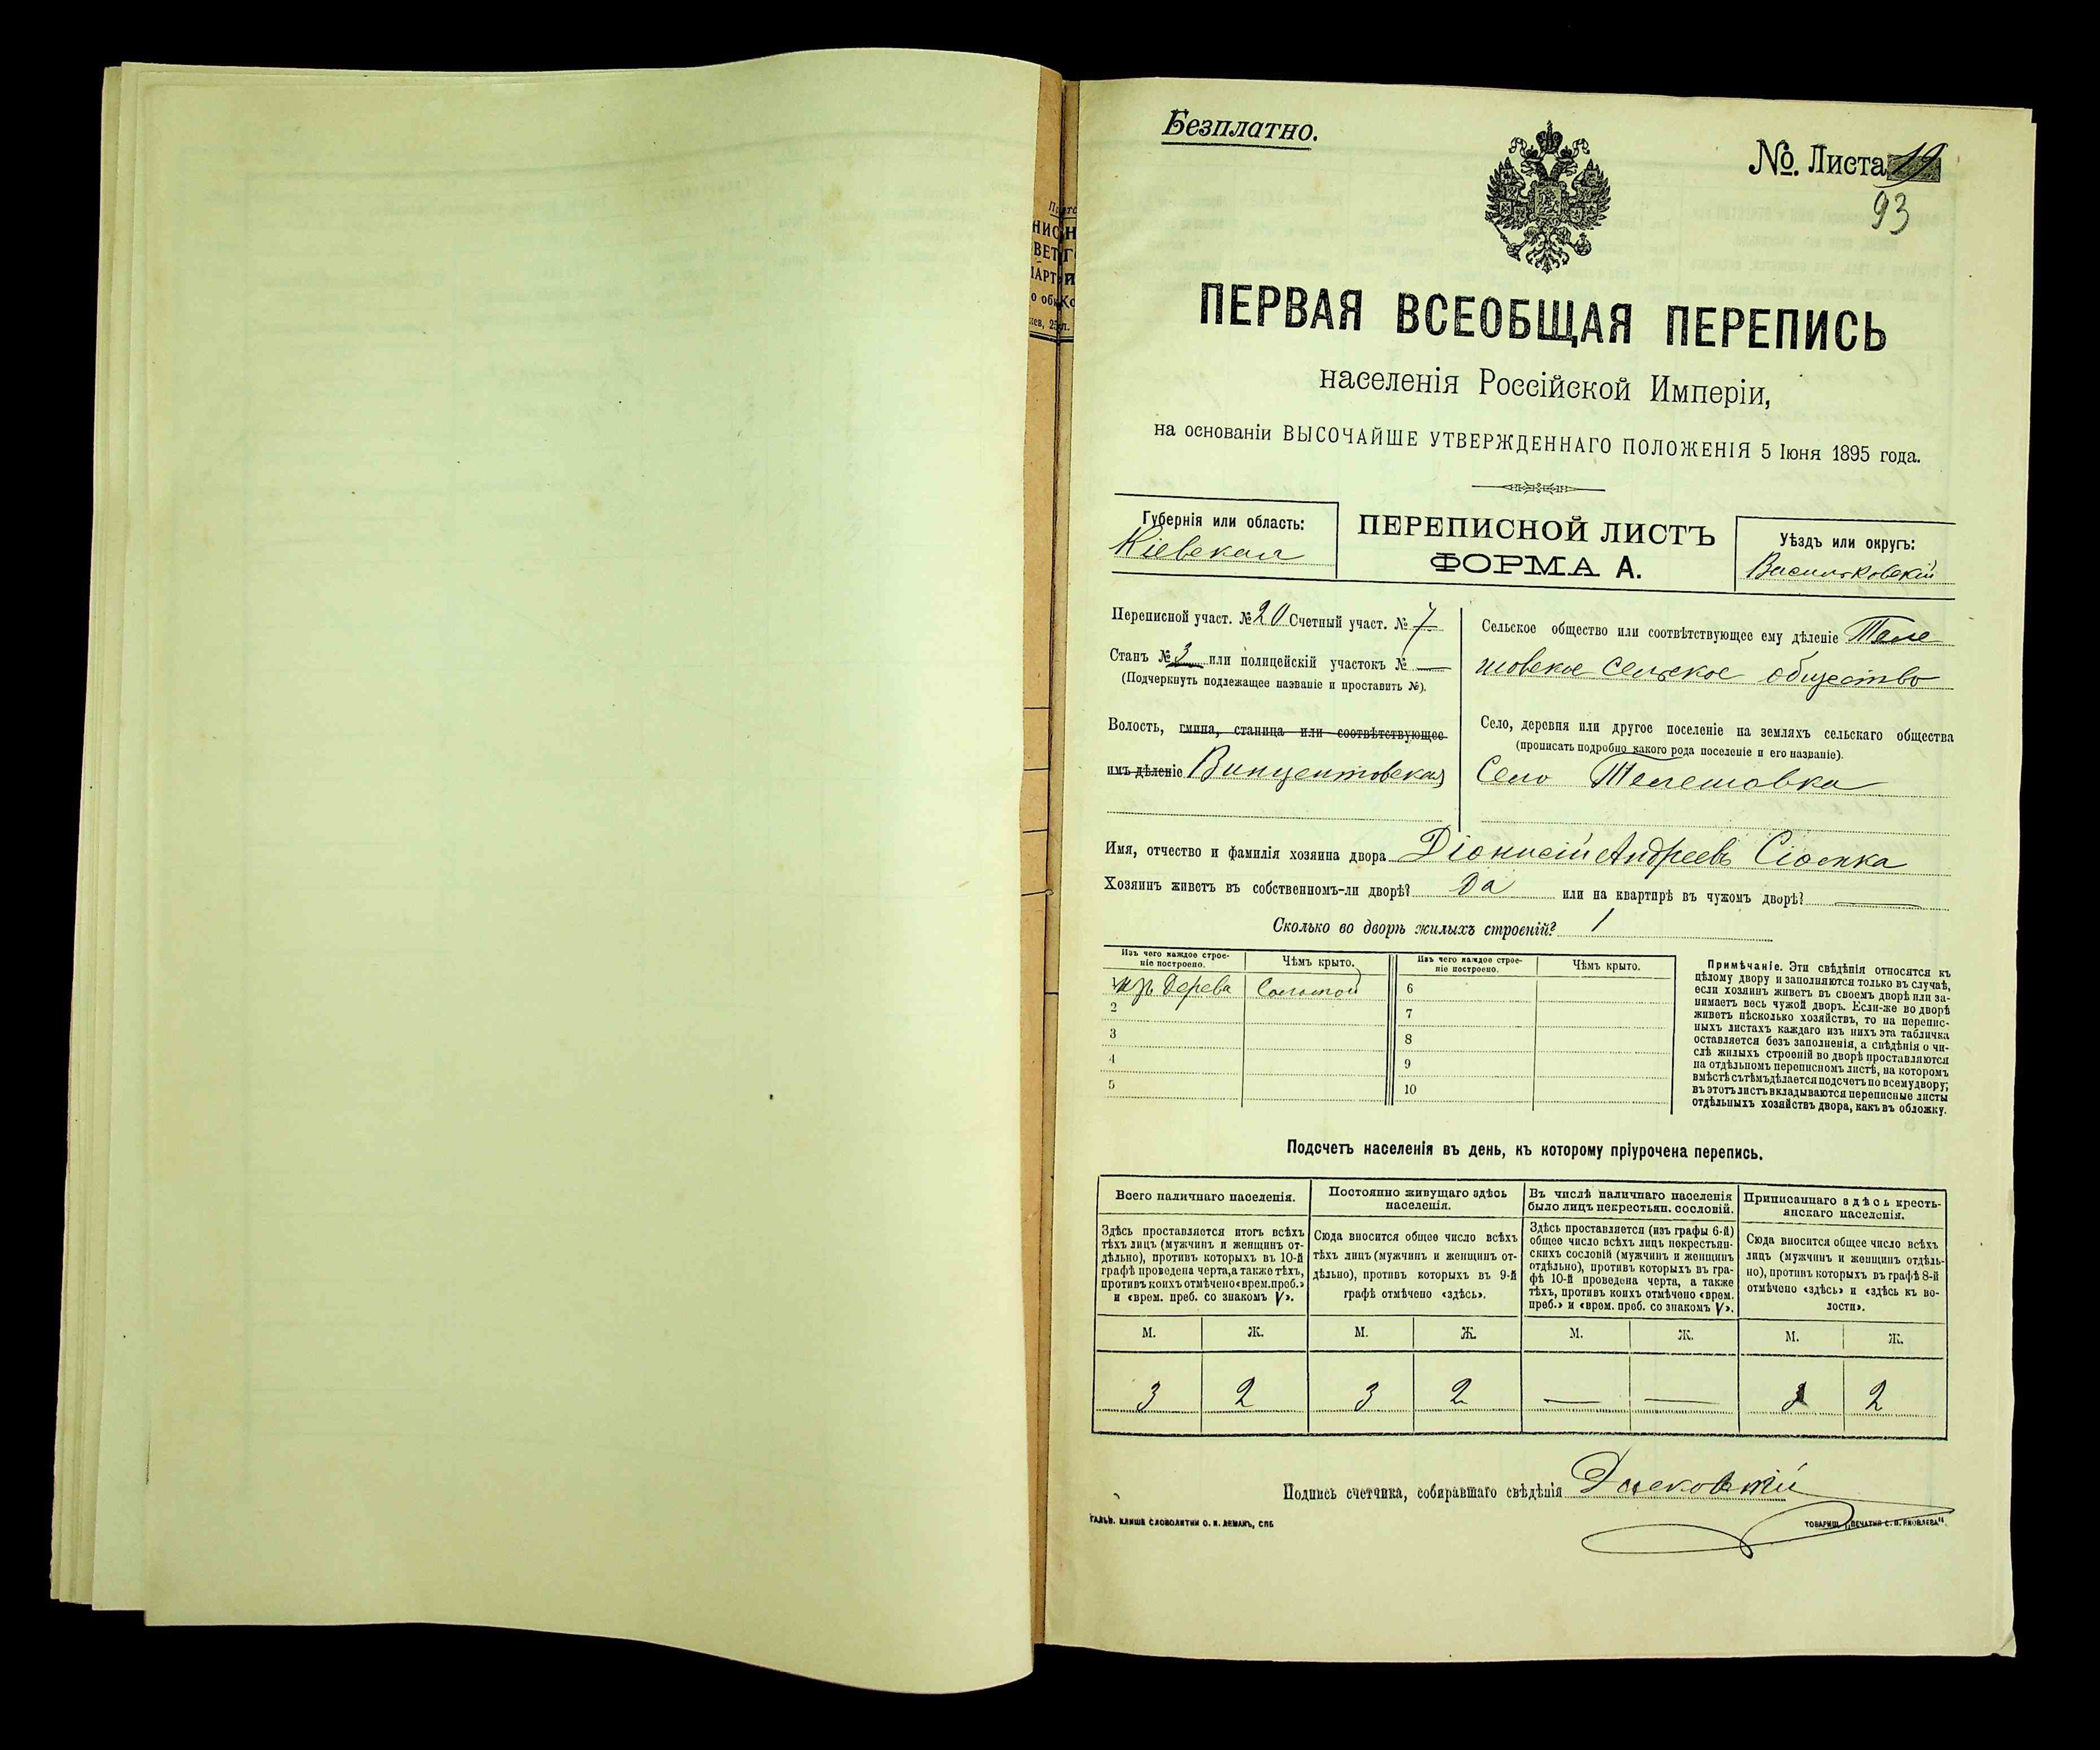 Безплатно.
№. Листа 19
93
ПЕРВАЯ ВСЕОБЩАЯ ПЕРЕПИСЬ
населенія Россійской Имперіи,
на основаніи ВЫСОЧАЙШЕ УТВЕРЖДЕННАГО ПОЛОЖЕНІЯ 5 Іюня 1895 года.
Губернія или область:
Кіевская
ПЕРЕПИСНОЙ ЛИСТЪ
ФОРМА А.
Уѣздъ или округъ:
Васильковскій
Переписной участ. № 20 Счетный участ. № 7
Станъ № 3 или полицейскій участокъ № —
(Подчеркнуть подлежащее названіе и проставить №).
Волость, гмина, станица или соотвѣтствующее
имъ дѣленіе Винцентовская
Сельское общество или соотвѣтствующее ему дѣленіе Теле
шовское сельское общество
Село, деревня или другое поселеніе на земляхъ сельскаго общества
(прописать подробно какого рода поселеніе и его названіе).
Село Телешовка
Имя, отчество и фамилія хозяина двора Діонисій Андреевъ
Хозяинъ живетъ въ собственномъ-ли дворѣ? Да или на квартирѣ въ чужомъ дворѣ? —
Сколько во дворѣ жилыхъ строеній? 1
Изъ чего каждое строе-
ніе построено.
Чѣмъ крыто.
Изъ чего каждое строе-
ніе построено.
Чѣмъ крыто.
1 изъ дерева Соломой 6
2 7
3 8
4 9
5 10
Примѣчаніе. Эти свѣдѣнія относятся къ
цѣлому двору и заполняются только въ случаѣ,
если хозяинъ живетъ въ своемъ дворѣ или за-
нимаетъ весь чужой дворъ. Если-же во дворѣ
живетъ нѣсколько хозяйствъ, то на перепис-
ныхъ листахъ каждаго изъ нихъ эта табличка
оставляется безъ заполненія, а свѣдѣнія о чи-
слѣ жилыхъ строеній во дворѣ проставляются
на отдѣльномъ переписномъ листѣ, на которомъ
вмѣстѣ съ тѣмъ дѣлается подсчетъ по всему двору;
въ этотъ листъ вкладываются переписные листы
отдѣльныхъ хозяйствъ двора, какъ въ обложку.
Подсчетъ населенія въ день, къ которому пріурочена перепись.
Всего наличнаго населенія.
Здѣсь проставляется итогъ всѣхъ
тѣхъ лицъ (мужчинъ и женщинъ от-
дѣльно), противъ которыхъ въ 10-й
графѣ проведена черта, а также тѣхъ,
противъ коихъ отмѣчено «врем. преб.»
и «врем. преб. со знакомъ V».
Постоянно живущаго здѣсь
населенія.
Сюда вносится общее число всѣхъ
тѣхъ лицъ (мужчинъ и женщинъ от-
дѣльно), противъ которыхъ въ 9-й
графѣ отмѣчено «здѣсь».
Въ числѣ наличнаго населенія
было лицъ некрестьян. сословій.
Здѣсь проставляется (изъ графы 6-й)
общее число всѣхъ лицъ некрестьян-
скихъ сословій (мужчинъ и женщинъ
отдѣльно), противъ которыхъ въ гра-
фѣ 10-й проведена черта, а также
тѣхъ, противъ коихъ отмѣчено «врем.
преб.» и «врем. преб. со знакомъ V».
Приписаннаго здѣсь кресть-
янскаго населенія.
Сюда вносится общее число всѣхъ
лицъ (мужчинъ и женщинъ отдѣль-
но), противъ которыхъ въ графѣ 8-й
отмѣчено «здѣсь» и «здѣсь къ во-
лости».
М. Ж. М. Ж. М. Ж. М. Ж.
3 2 3 2 — — 2
Подпись счетчика, собиравшаго свѣдѣнія
ГАЛЬВ. КЛИШЕ СЛОВОЛИТНИ О. И. ЛЕМАНЪ, СПБ
ТОВАРИЩ. „ПЕЧАТНЯ С. П. ЯКОВЛЕВА“